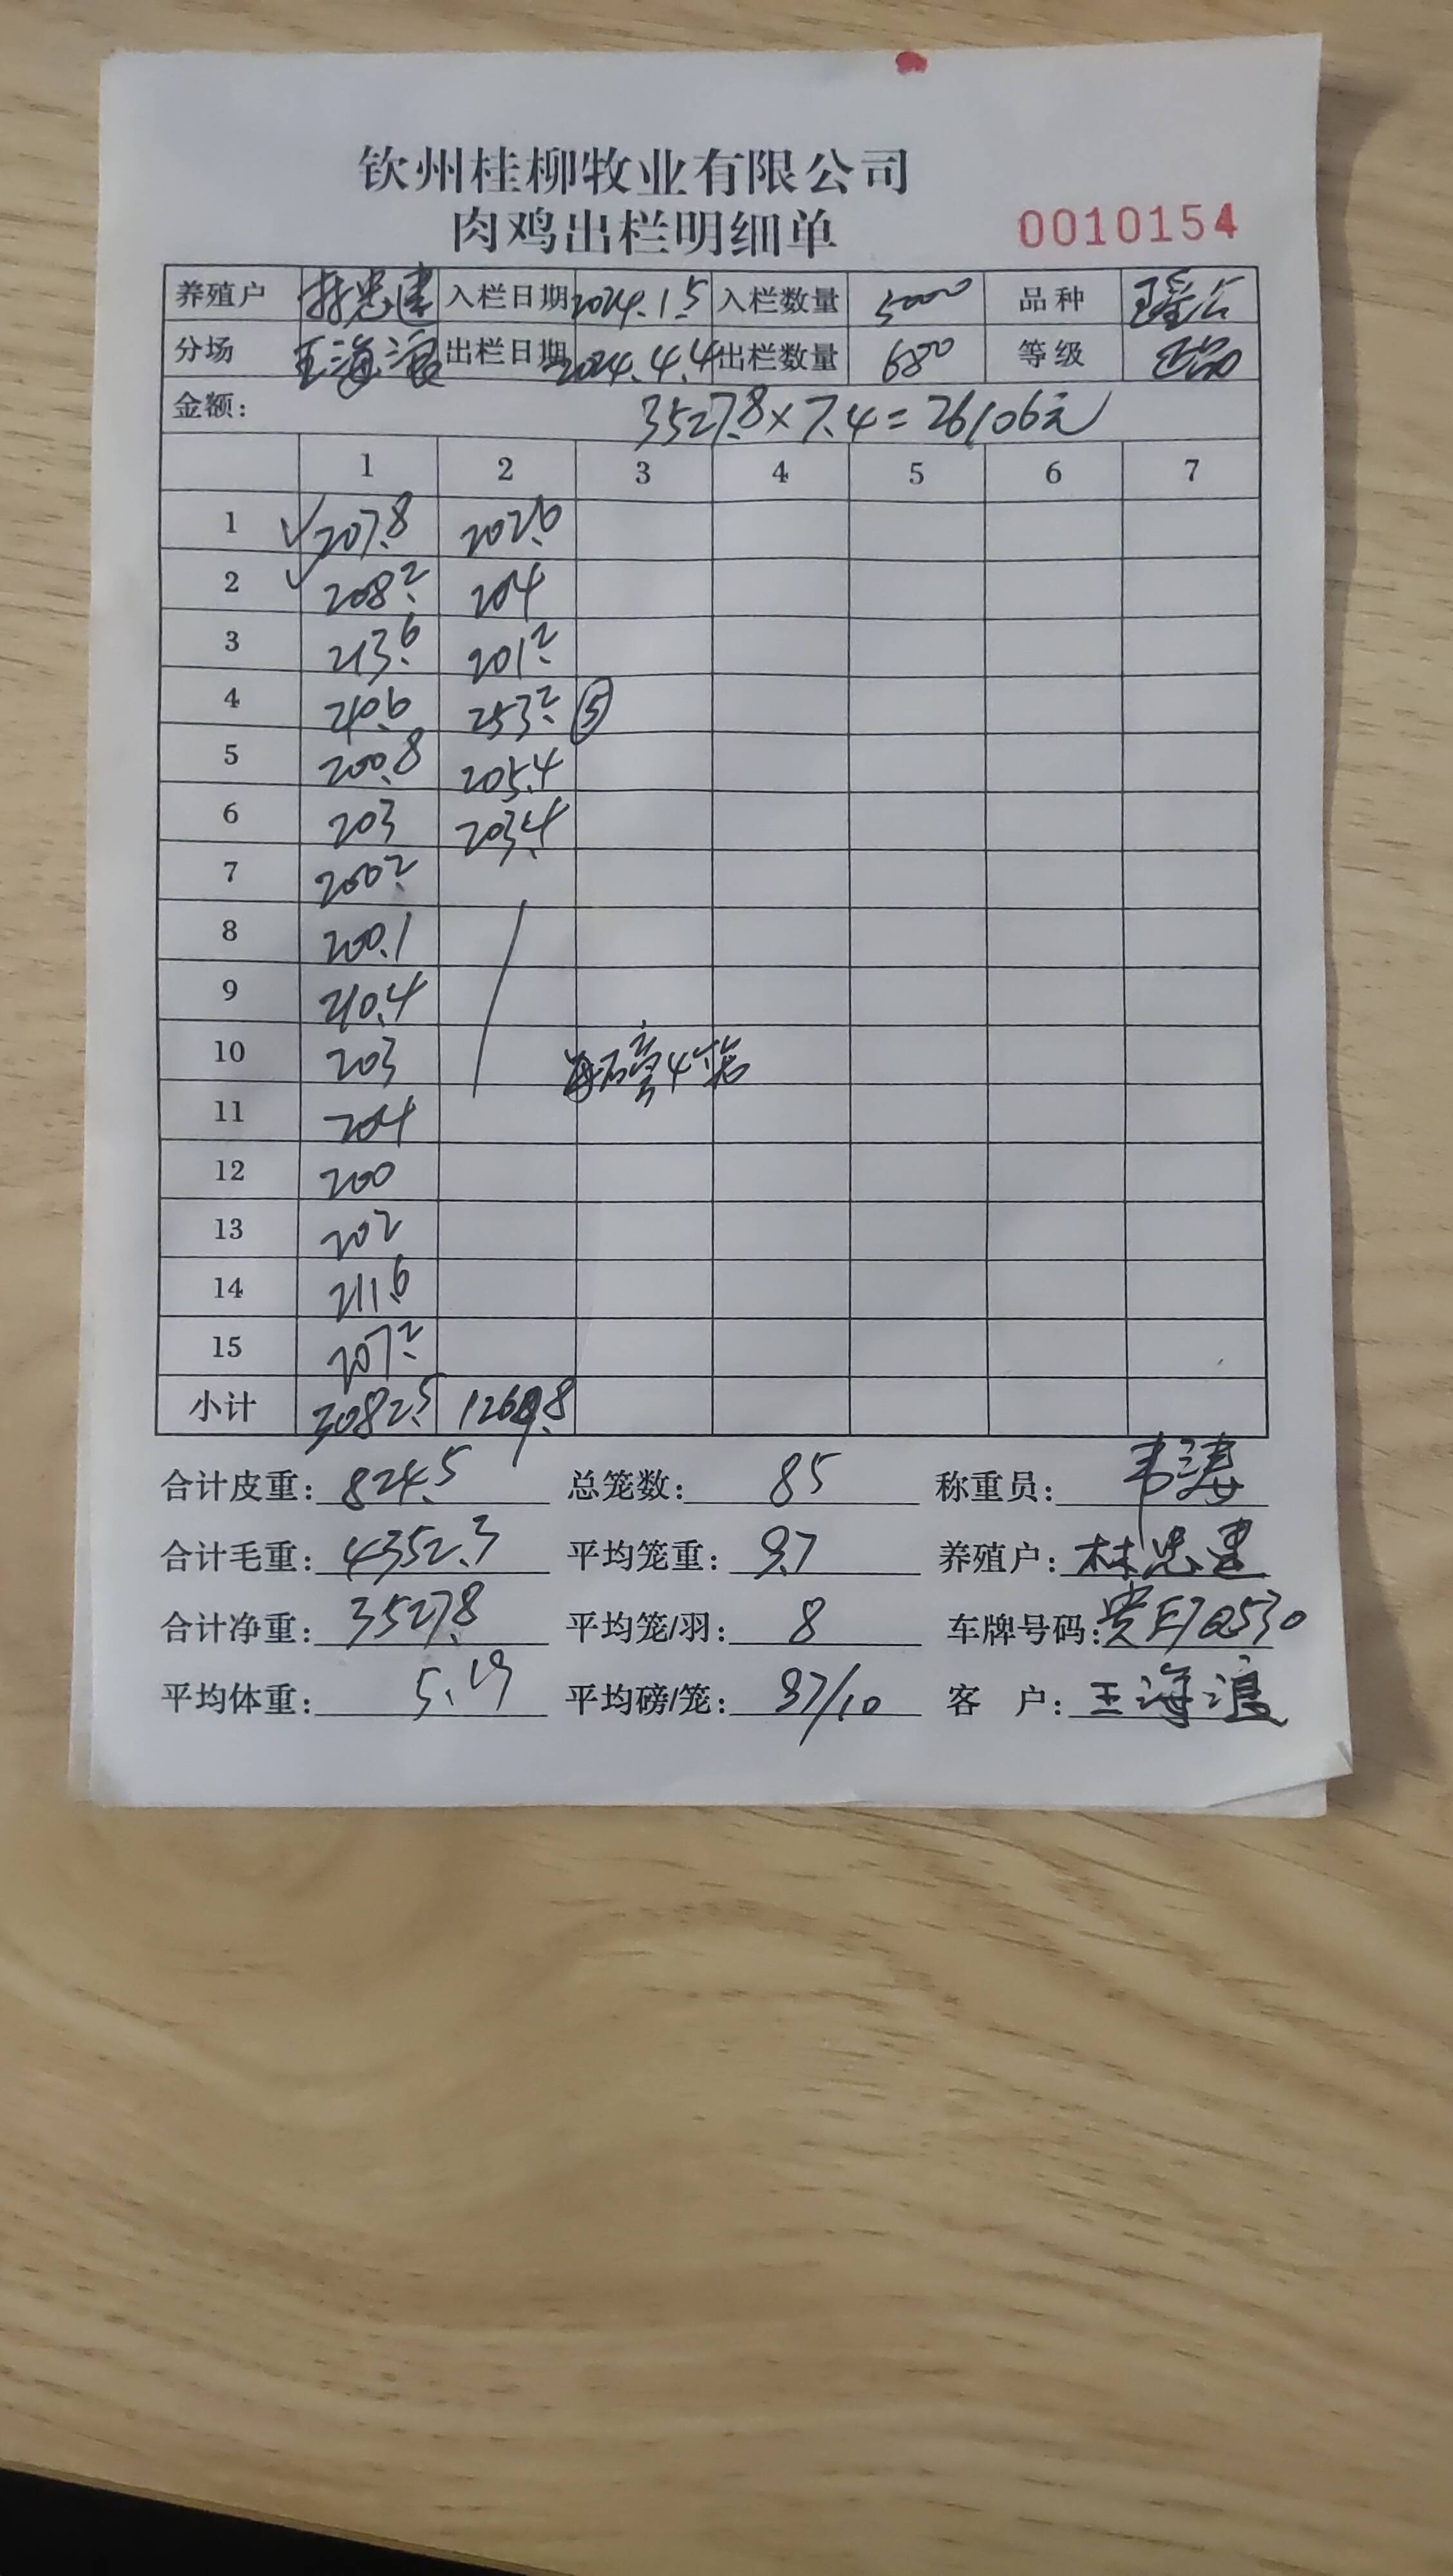 钦州桂柳牧业有限公司
肉鸡出栏明细单 0010154
养殖户 林忠建 入栏日期 2024.1.5 入栏数量 5000 品种 瑶公
分场 王海浪 出栏日期 2024.4.4 出栏数量 680 等级 正品
金额: 3527.8×7.4=26106元
1 2 3 4 5 6 7
1 ✓207.8 202.6
2 ✓208.2 204
3 213.6 201.2
4 210.6 253.2 ⑤
5 200.8 205.4
6 203 203.4
7 200.2
8 200.1
9 210.4
10 203 每磅4笼
11 204
12 200
13 202
14 211.6
15 207.2
小计 3082.5 1269.8
合计皮重: 824.5 总笼数: 85 称重员: 韦涛
合计毛重: 4352.3 平均笼重: 9.7 养殖户: 林忠建
合计净重: 3527.8 平均笼/羽: 8 车牌号码:
平均体重: 5.19 平均磅/笼: 97/10 客 户: 王海浪